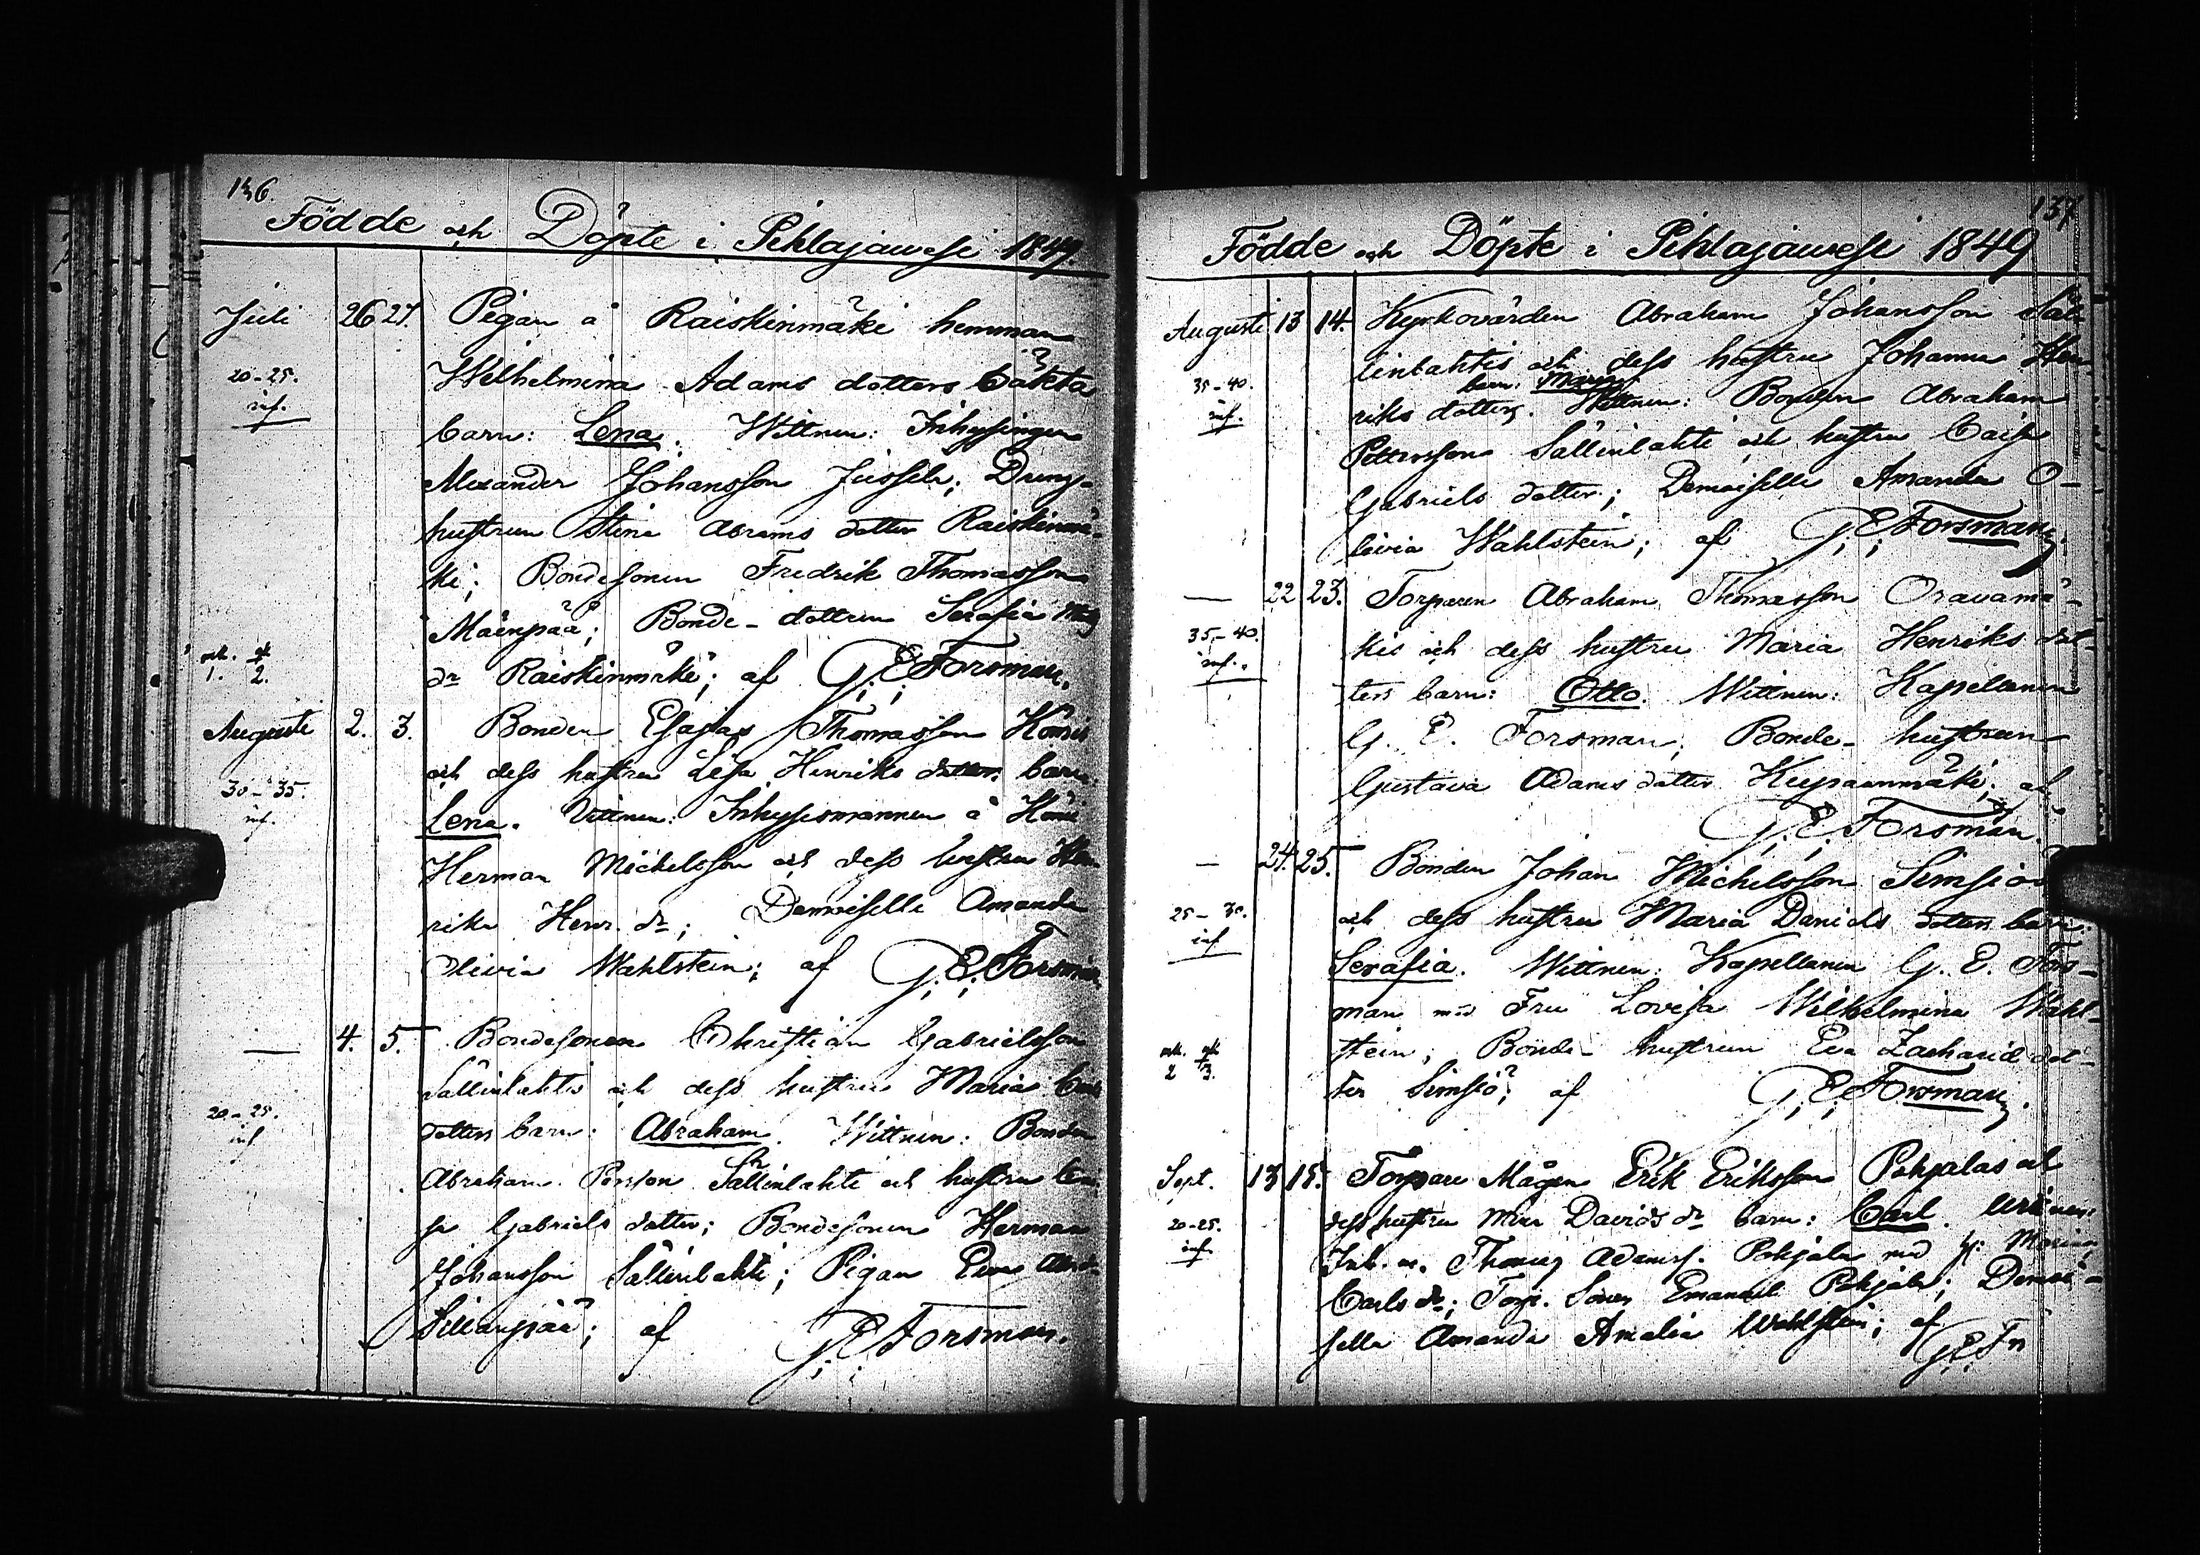 136.
Födde och Döpte i Pihlajawesi 1849
Juli 26 27. Pigan å Raiskinmäki hemman
20-25. Wilhelmina Adams dotters oäkta
inf. barn: Lena. Wittnen: Inhysingen
Alexander Johansson Jussila; Dreng-
hustrun Stina Abrams dotter Raiskinmä-
ki; Bondesonen Fredrik Thomasson
Mäenpää; Bonde-dottren Serafia
mk. qk. dr Raiskinmäki; af G. E. Forsman.
1. 2.
Augusti 2. 3. Bonden Esajas Thomasson
30-35. och dess hustru Lisa Henriks dotters barn:
inf. Lena. Vittnen: Inhysesmannen å
Herman Michelsson och dess hustru Hen-
rika Henr. dr; Demoiselle Amanda
Olivia Wahlstein; af G. E. Forsman.
— 4. 5. Bondesonen Christian Gabrielsson
Sällinlahtis och dess hustru Maria
20-25. dotters barn: Abraham. Wittnen: Bonden
inf Abraham Sällinlahti och hustru Cai-
sa Gabriels dotter; Bondesonen Herman
Johansson Sällinlahti; Pigan Eva
Sillanpää; af G. E. Forsman.
137
Födde och Döpte i Pihlajawesi 1849
Augusti 13 14. Kyrkovärden Abraham Johansson Säl-
linlahtis och dess hustru Johanna Hen-
35-40. riks dotters barn: Maria. Wittnen: Bonden Abraham
inf. Pettersson Sällinlahti och hustru Caisa
Gabriels dotter; Demoiselle Amanda O-
livia Wahlstein; af G. E. Forsman.
— 22 23. Torparen Abraham Thomasson Oravamä-
35-40. kis och dess hustru Maria Henriks dot-
inf. ters barn: Otto. Wittnen: Kapellanen
G. E. Forsman; Bonde-hustrun
Gustava Adams dotter; af
G. E. Forsman.
— 24. 25. Bonden Johan Michelsson Simsiö
25-30. och dess hustru Maria Daniels dotters barn:
inf Serafia. Wittnen: Kapellanen G. E. Fors-
man med Fru Lovisa Wilhelmina Wahl-
mk. qk. stein; Bonde-hustrun Eva Zacharie dot-
2 3. ter Simsiö; af G. E. Forsman.
Sept. 13 15. Torpare Mågen Erik Eriksson Pohjalas och
20-25. dess hustru Davids dr barn: Carl. Wittnen:
inf. Inh. m. Thomas Adamss. Pohjala med h: Maria
Carls dr; Torp. Sonen Emanuel Pohjala; Demoi-
selle Amanda Amalia Wahlstein; af
G. E. Fn